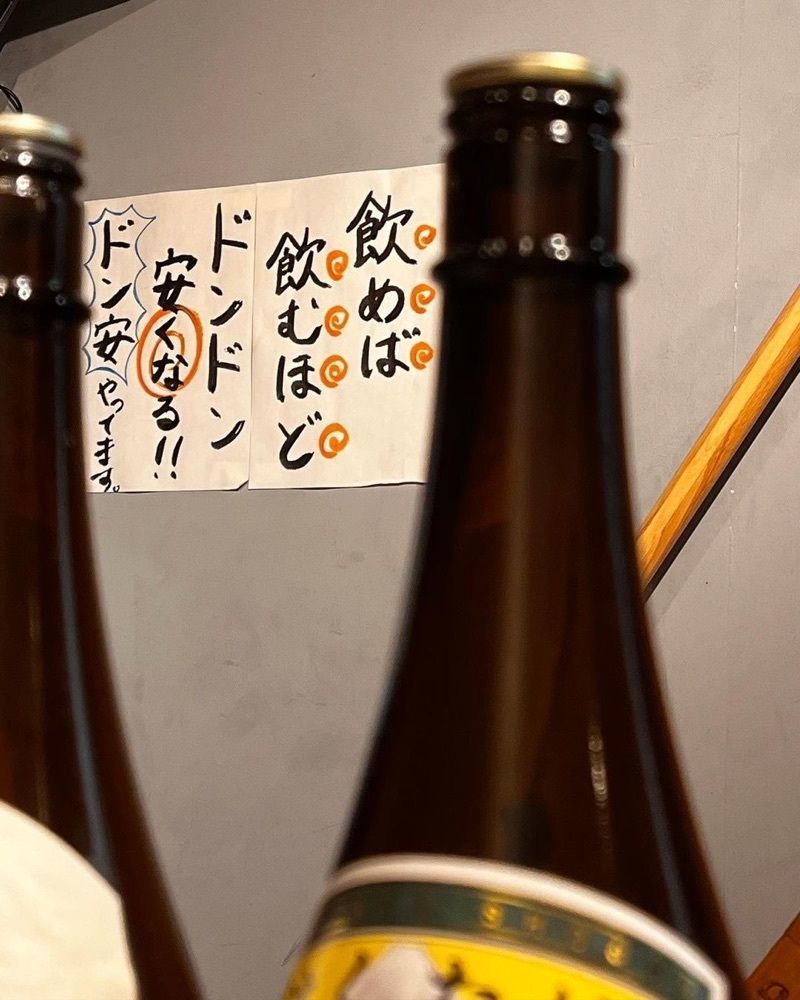 飲めば
飲むほど
ドンドン
安くなる!!
ドン安やってます。